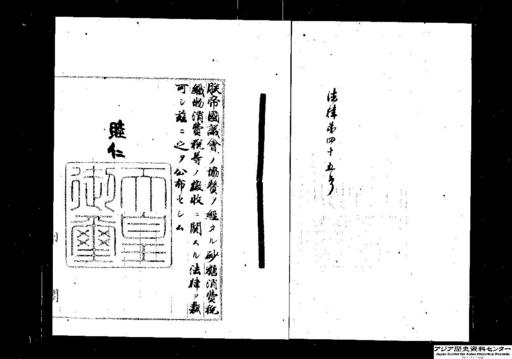 法律第四十五号
朕帝國議會ノ協賛ヲ經タル砂糖消費税
織物消費税等ノ徴收ニ関スル法律ヲ裁
可シ茲ニ之ヲ公布セシム
睦仁
天皇
御璽
アジア歴史資料センター
Japan Center for Asian Historical Records